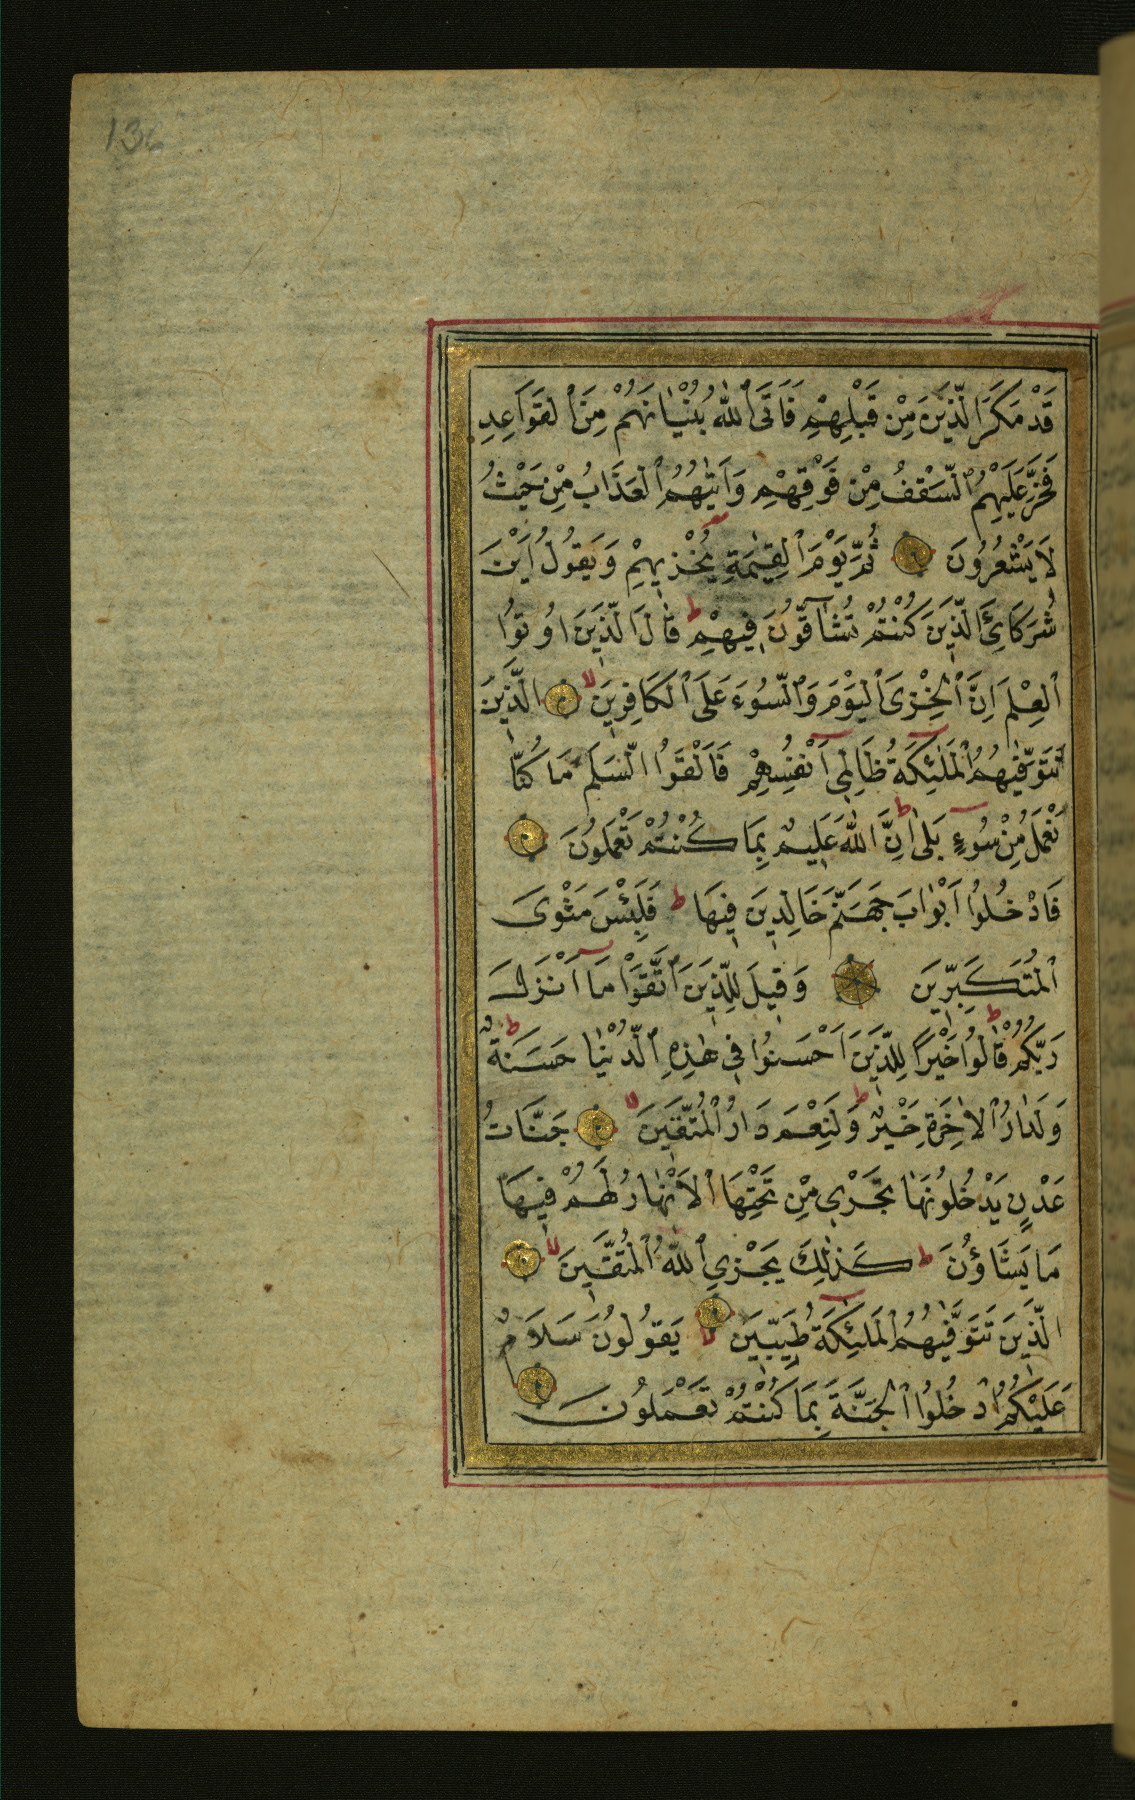 13
قَدْ مَكَرَ الَّذِينَ مِنْ قَبْلِهِمْ فَاَتَى اللّٰهُ بُنْيَانَهُمْ مِنَ الْقَوَاعِدِ
فَخَرَّ عَلَيْهِمُ السَّقْفُ مِنْ فَوْقِهِمْ وَاَتٰيهُمُ الْعَذَابُ مِنْ حَيْثُ
لَا يَشْعُرُونَ ثُمَّ يَوْمَ الْقِيٰمَةِ يُخْزِيهِمْ وَيَقُولُ اَيْنَ
شُرَكَائِيَ الَّذِينَ كُنْتُمْ تُشَاقُّونَ فِيهِمْ ط قَالَ الَّذِينَ اُوتُوا
الْعِلْمَ اِنَّ الْخِزْىَ الْيَوْمَ وَالسُّوءَ عَلَى الْكَافِرِينَ لا الَّذِينَ
تَتَوَفّٰيهُمُ الْمَلٰئِكَةُ ظَالِمِي اَنْفُسِهِمْ فَاَلْقَوُا السَّلَمَ مَا كُنَّا
نَعْمَلُ مِنْ سُوءٍ ط بَلٰى اِنَّ اللّٰهَ عَلِيمٌ بِمَا كُنْتُمْ تَعْمَلُونَ
فَادْخُلُوا اَبْوَابَ جَهَنَّمَ خَالِدِينَ فِيهَا ط فَلَبِئْسَ مَثْوَى
الْمُتَكَبِّرِينَ وَقِيلَ لِلَّذِينَ اتَّقَوْا مَا اَنْزَلَ
رَبُّكُمْ قَالُوا خَيْرًا ط لِلَّذِينَ اَحْسَنُوا فِي هٰذِهِ الدُّنْيَا حَسَنَةٌ ط
وَلَدَارُ الْاٰخِرَةِ خَيْرٌ ط وَلَنِعْمَ دَارُ الْمُتَّقِينَ لا جَنَّاتُ
عَدْنٍ يَدْخُلُونَهَا تَجْرِي مِنْ تَحْتِهَا الْاَنْهَارُ لَهُمْ فِيهَا
مَا يَشَاؤُنَ ط كَذٰلِكَ يَجْزِي اللّٰهُ الْمُتَّقِينَ لا
الَّذِينَ تَتَوَفّٰيهُمُ الْمَلٰئِكَةُ طَيِّبِينَ لا يَقُولُونَ سَلَامٌ
عَلَيْكُمُ ادْخُلُوا الْجَنَّةَ بِمَا كُنْتُمْ تَعْمَلُونَ